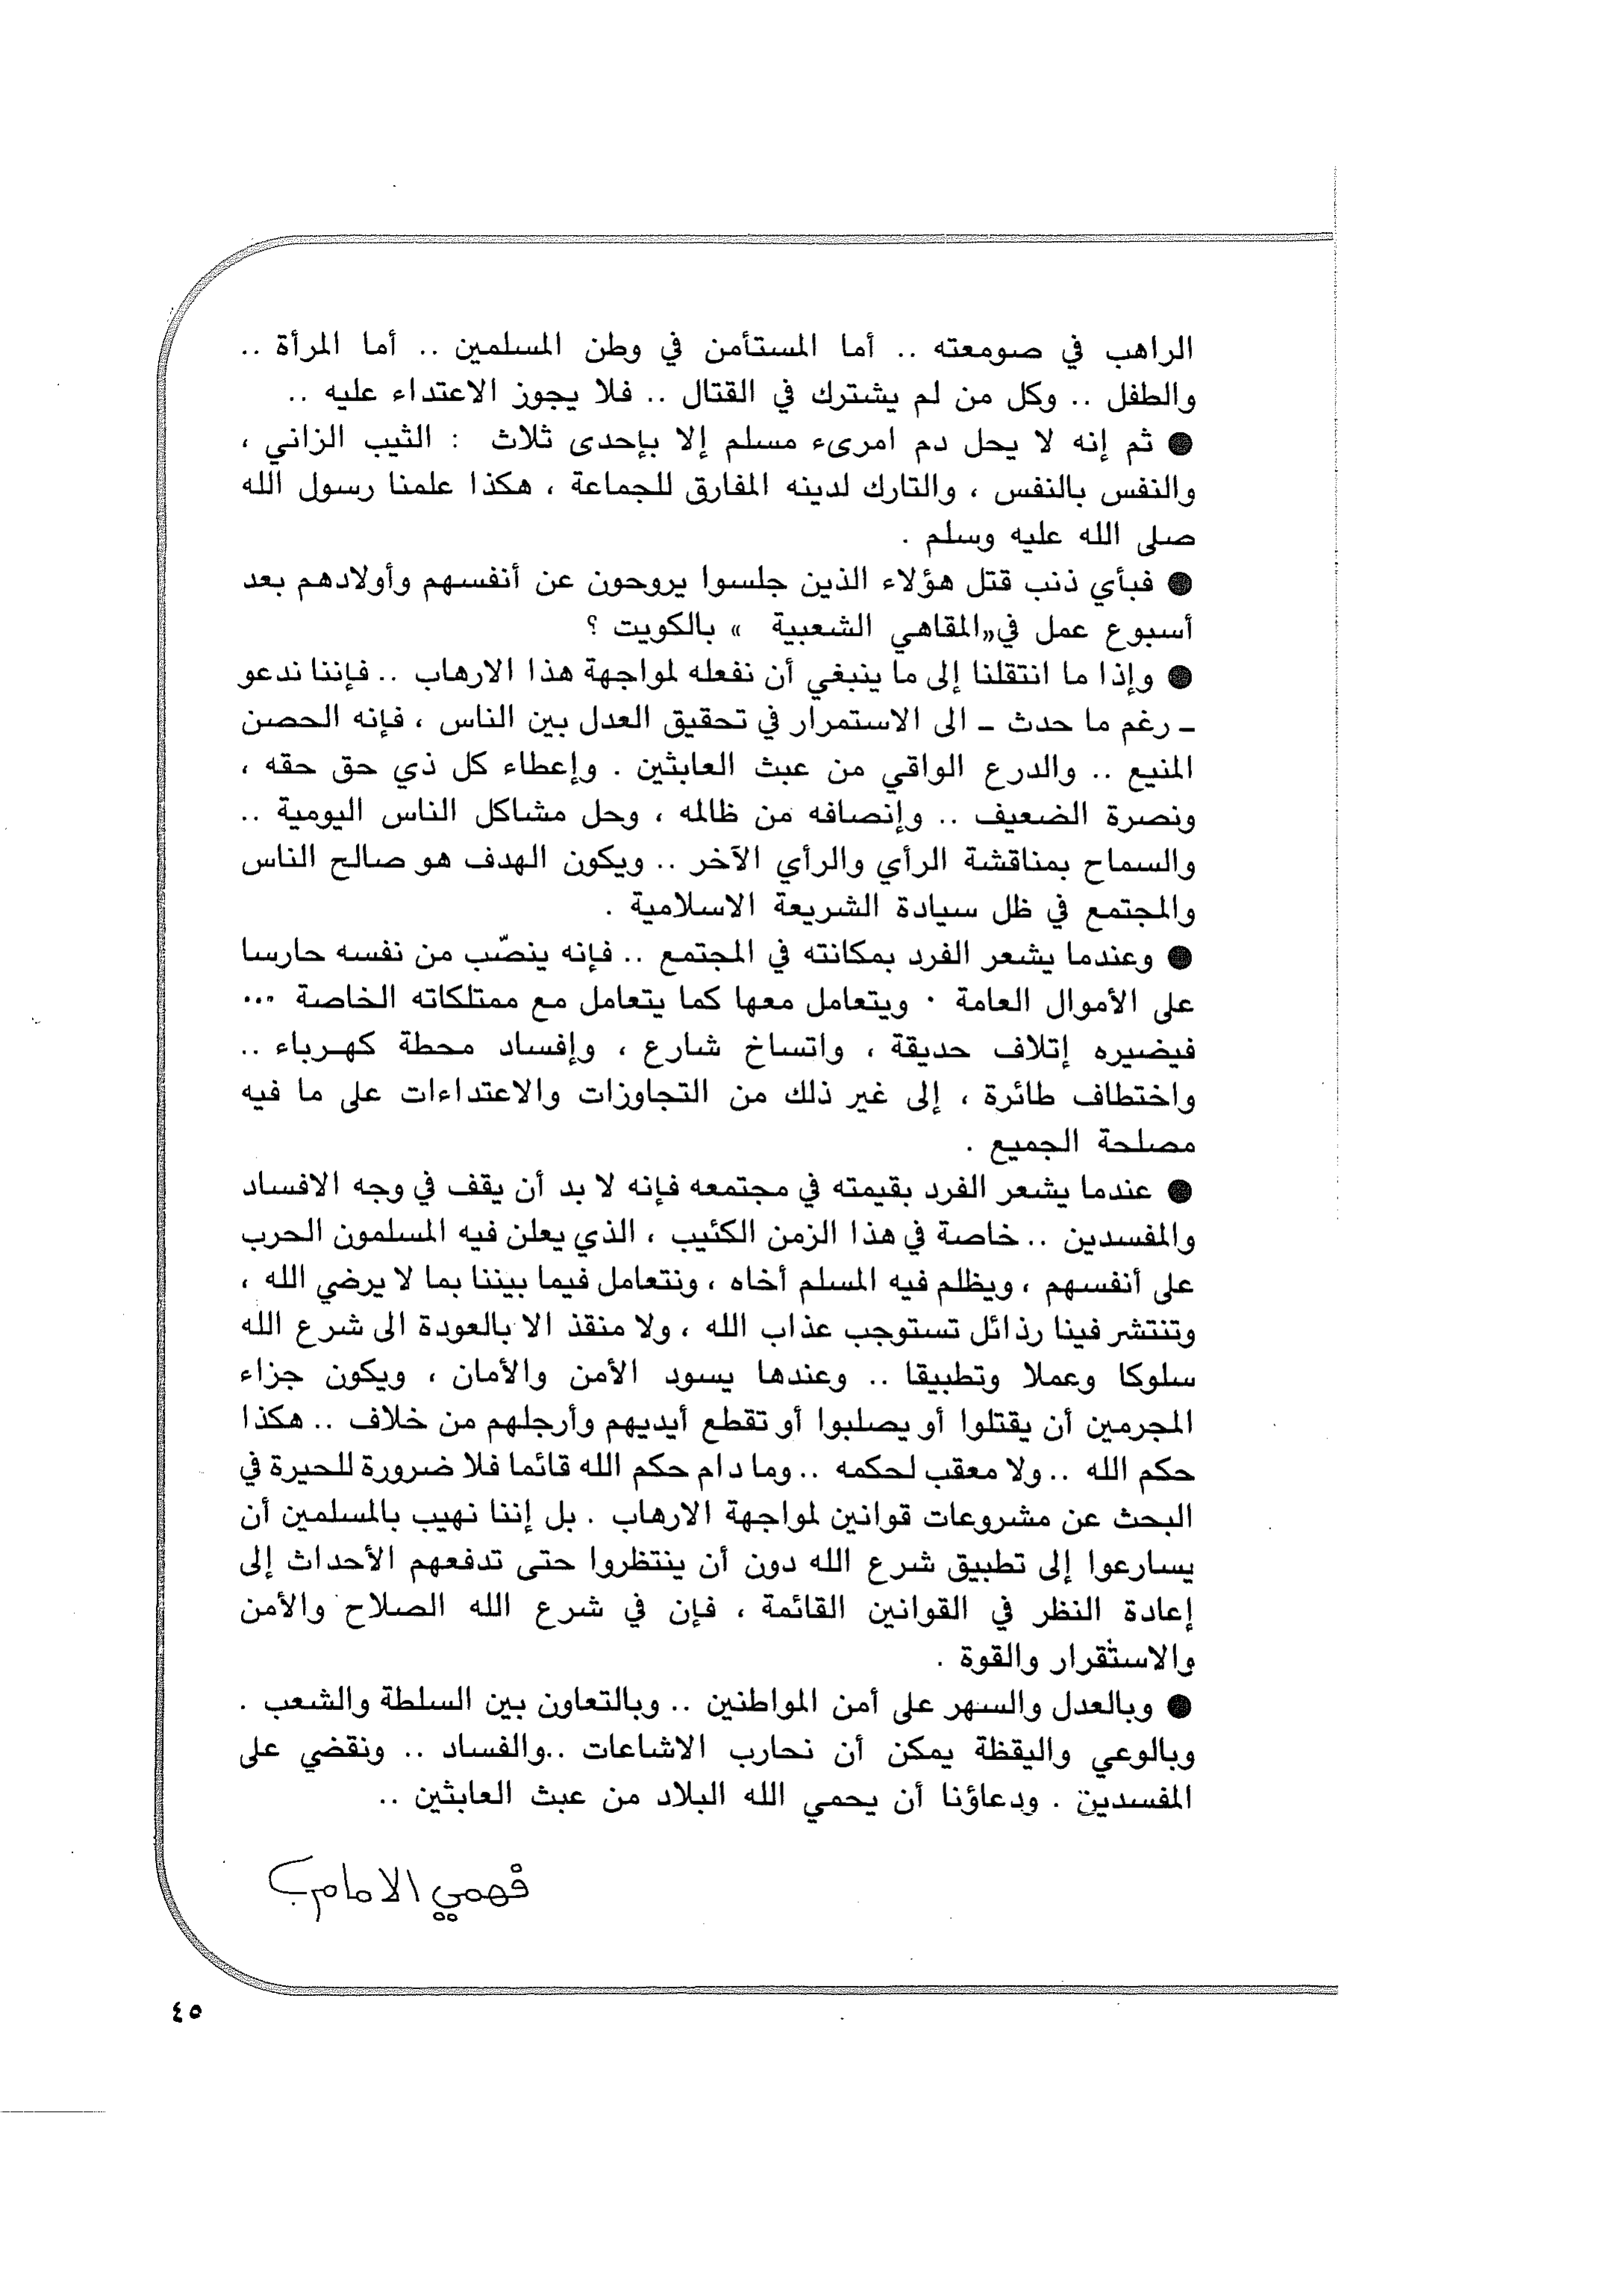 الراهب في صومعته .. أما المستأمن في وطن المسلمين .. أما المرأة ..
والطفل .. وكل من لم يشترك في القتال .. فلا يجوز الاعتداء عليه ..
● ثم إنه لا يحل دم امرىء مسلم إلا بإحدى ثلاث : الثيب الزاني ،
والنفس بالنفس ، والتارك لدينه المفارق للجماعة ، هكذا علمنا رسول الله
صلى الله عليه وسلم .
● فبأي ذنب قتل هؤلاء الذين جلسوا يروحون عن أنفسهم وأولادهم بعد
أسبوع عمل في «المقاهي الشعبية » بالكويت ؟
● وإذا ما انتقلنا إلى ما ينبغي أن نفعله لمواجهة هذا الارهاب .. فإننا ندعو
ـ رغم ما حدث ـ الى الاستمرار في تحقيق العدل بين الناس ، فإنه الحصن
المنيع .. والدرع الواقي من عبث العابثين . وإعطاء كل ذي حق حقه ،
ونصرة الضعيف .. وإنصافه من ظالمه ، وحل مشاكل الناس اليومية ..
والسماح بمناقشة الرأي والرأي الآخر .. ويكون الهدف هو صالح الناس
والمجتمع في ظل سيادة الشريعة الاسلامية .
● وعندما يشعر الفرد بمكانته في المجتمع .. فإنه ينصّب من نفسه حارسا
على الأموال العامة . ويتعامل معها كما يتعامل مع ممتلكاته الخاصة ...
فيضيره إتلاف حديقة ، واتساخ شارع ، وإفساد محطة كهرباء ..
واختطاف طائرة ، إلى غير ذلك من التجاوزات والاعتداءات على ما فيه
مصلحة الجميع .
● عندما يشعر الفرد بقيمته في مجتمعه فإنه لا بد أن يقف في وجه الافساد
والمفسدين .. خاصة في هذا الزمن الكئيب ، الذي يعلن فيه المسلمون الحرب
على أنفسهم ، ويظلم فيه المسلم أخاه ، ونتعامل فيما بيننا بما لا يرضي الله ،
وتنتشر فينا رذائل تستوجب عذاب الله ، ولا منقذ الا بالعودة الى شرع الله
سلوكا وعملا وتطبيقا .. وعندها يسود الأمن والأمان ، ويكون جزاء
المجرمين أن يقتلوا أو يصلبوا أو تقطع أيديهم وأرجلهم من خلاف .. هكذا
حكم الله .. ولا معقب لحكمه .. وما دام حكم الله قائما فلا ضرورة للحيرة في
البحث عن مشروعات قوانين لمواجهة الارهاب . بل إننا نهيب بالمسلمين أن
يسارعوا إلى تطبيق شرع الله دون أن ينتظروا حتى تدفعهم الأحداث إلى
إعادة النظر في القوانين القائمة ، فإن في شرع الله الصلاح والأمن
والاستقرار والقوة .
● وبالعدل والسهر على أمن المواطنين .. وبالتعاون بين السلطة والشعب .
وبالوعي واليقظة يمكن أن نحارب الاشاعات ..والفساد .. ونقضي على
المفسدين . ودعاؤنا أن يحمي الله البلاد من عبث العابثين ..
فهمي الامام
٤٥